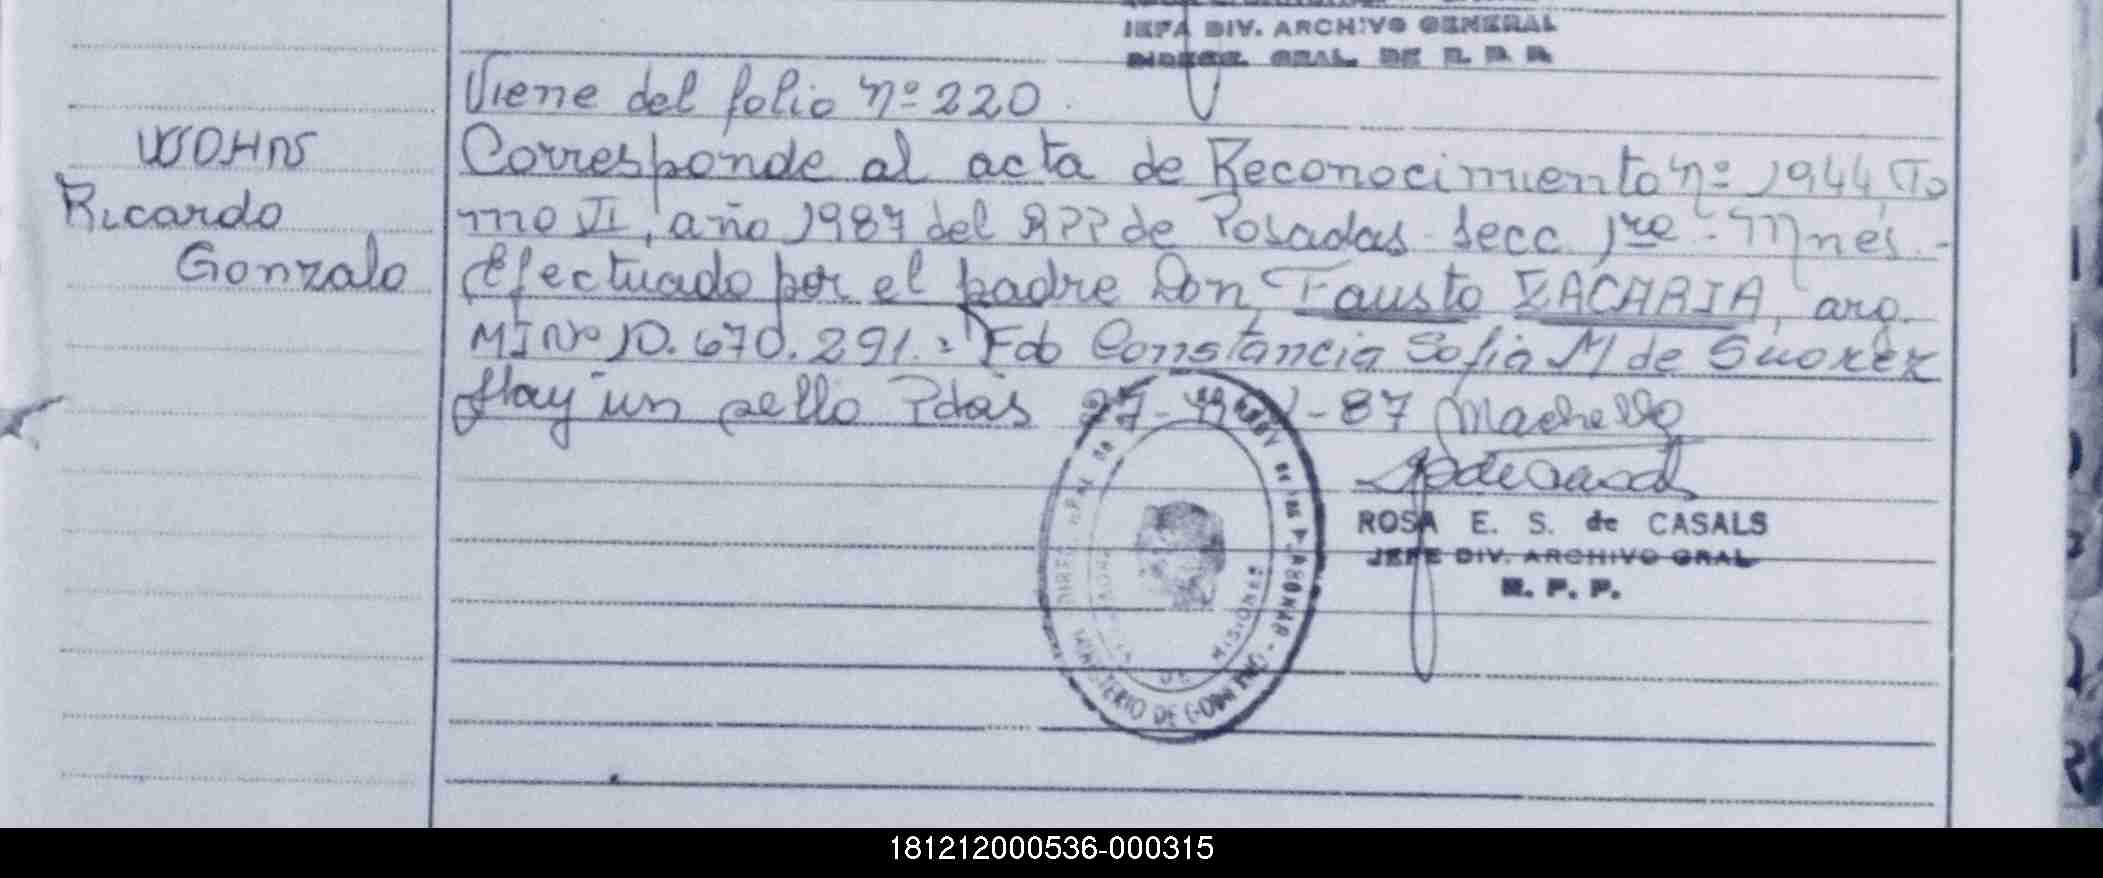 JEFA DIV. ARCHIVO GENERAL
DIRECC. GRAL. DE R. P. P.
Viene del folio nº 220.
WOHNS
Ricardo
Gonzalo
Corresponde al acta de Reconocimiento nº 1944, To
mo VI, año 1987 del RPP de Posadas Secc 1ra - Mnes.-
Efectuado por el padre Don Fausto ZACARIA, arg.
MI Nº 10.670.291.- Fdo Constancia Sofia M de Suarez
Hay un sello Pdas 27- -87
ROSA E. S. de CASALS
JEFE DIV. ARCHIVO GRAL
R. P. P.
MINISTERIO DE GOBIERNO
DE MISIONES
181212000536-000315